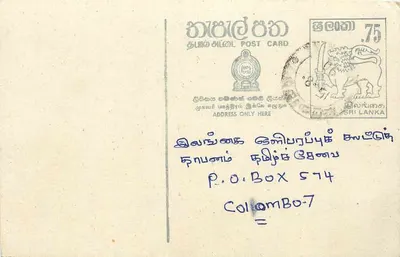 තැපැල් පත
தபால் அட்டை POST CARD
ලිපිනය පමණක් මෙහි ලියනු
ADDRESS ONLY HERE
ශ්‍රී ලංකා
.75
இலங்கை
SRI LANKA
இலங்கை ஒளிபரப்புக் கூட்டுத்
தாபனம் தமிழ்ச் சேவை
P.O.BOX 574
Colombo-7